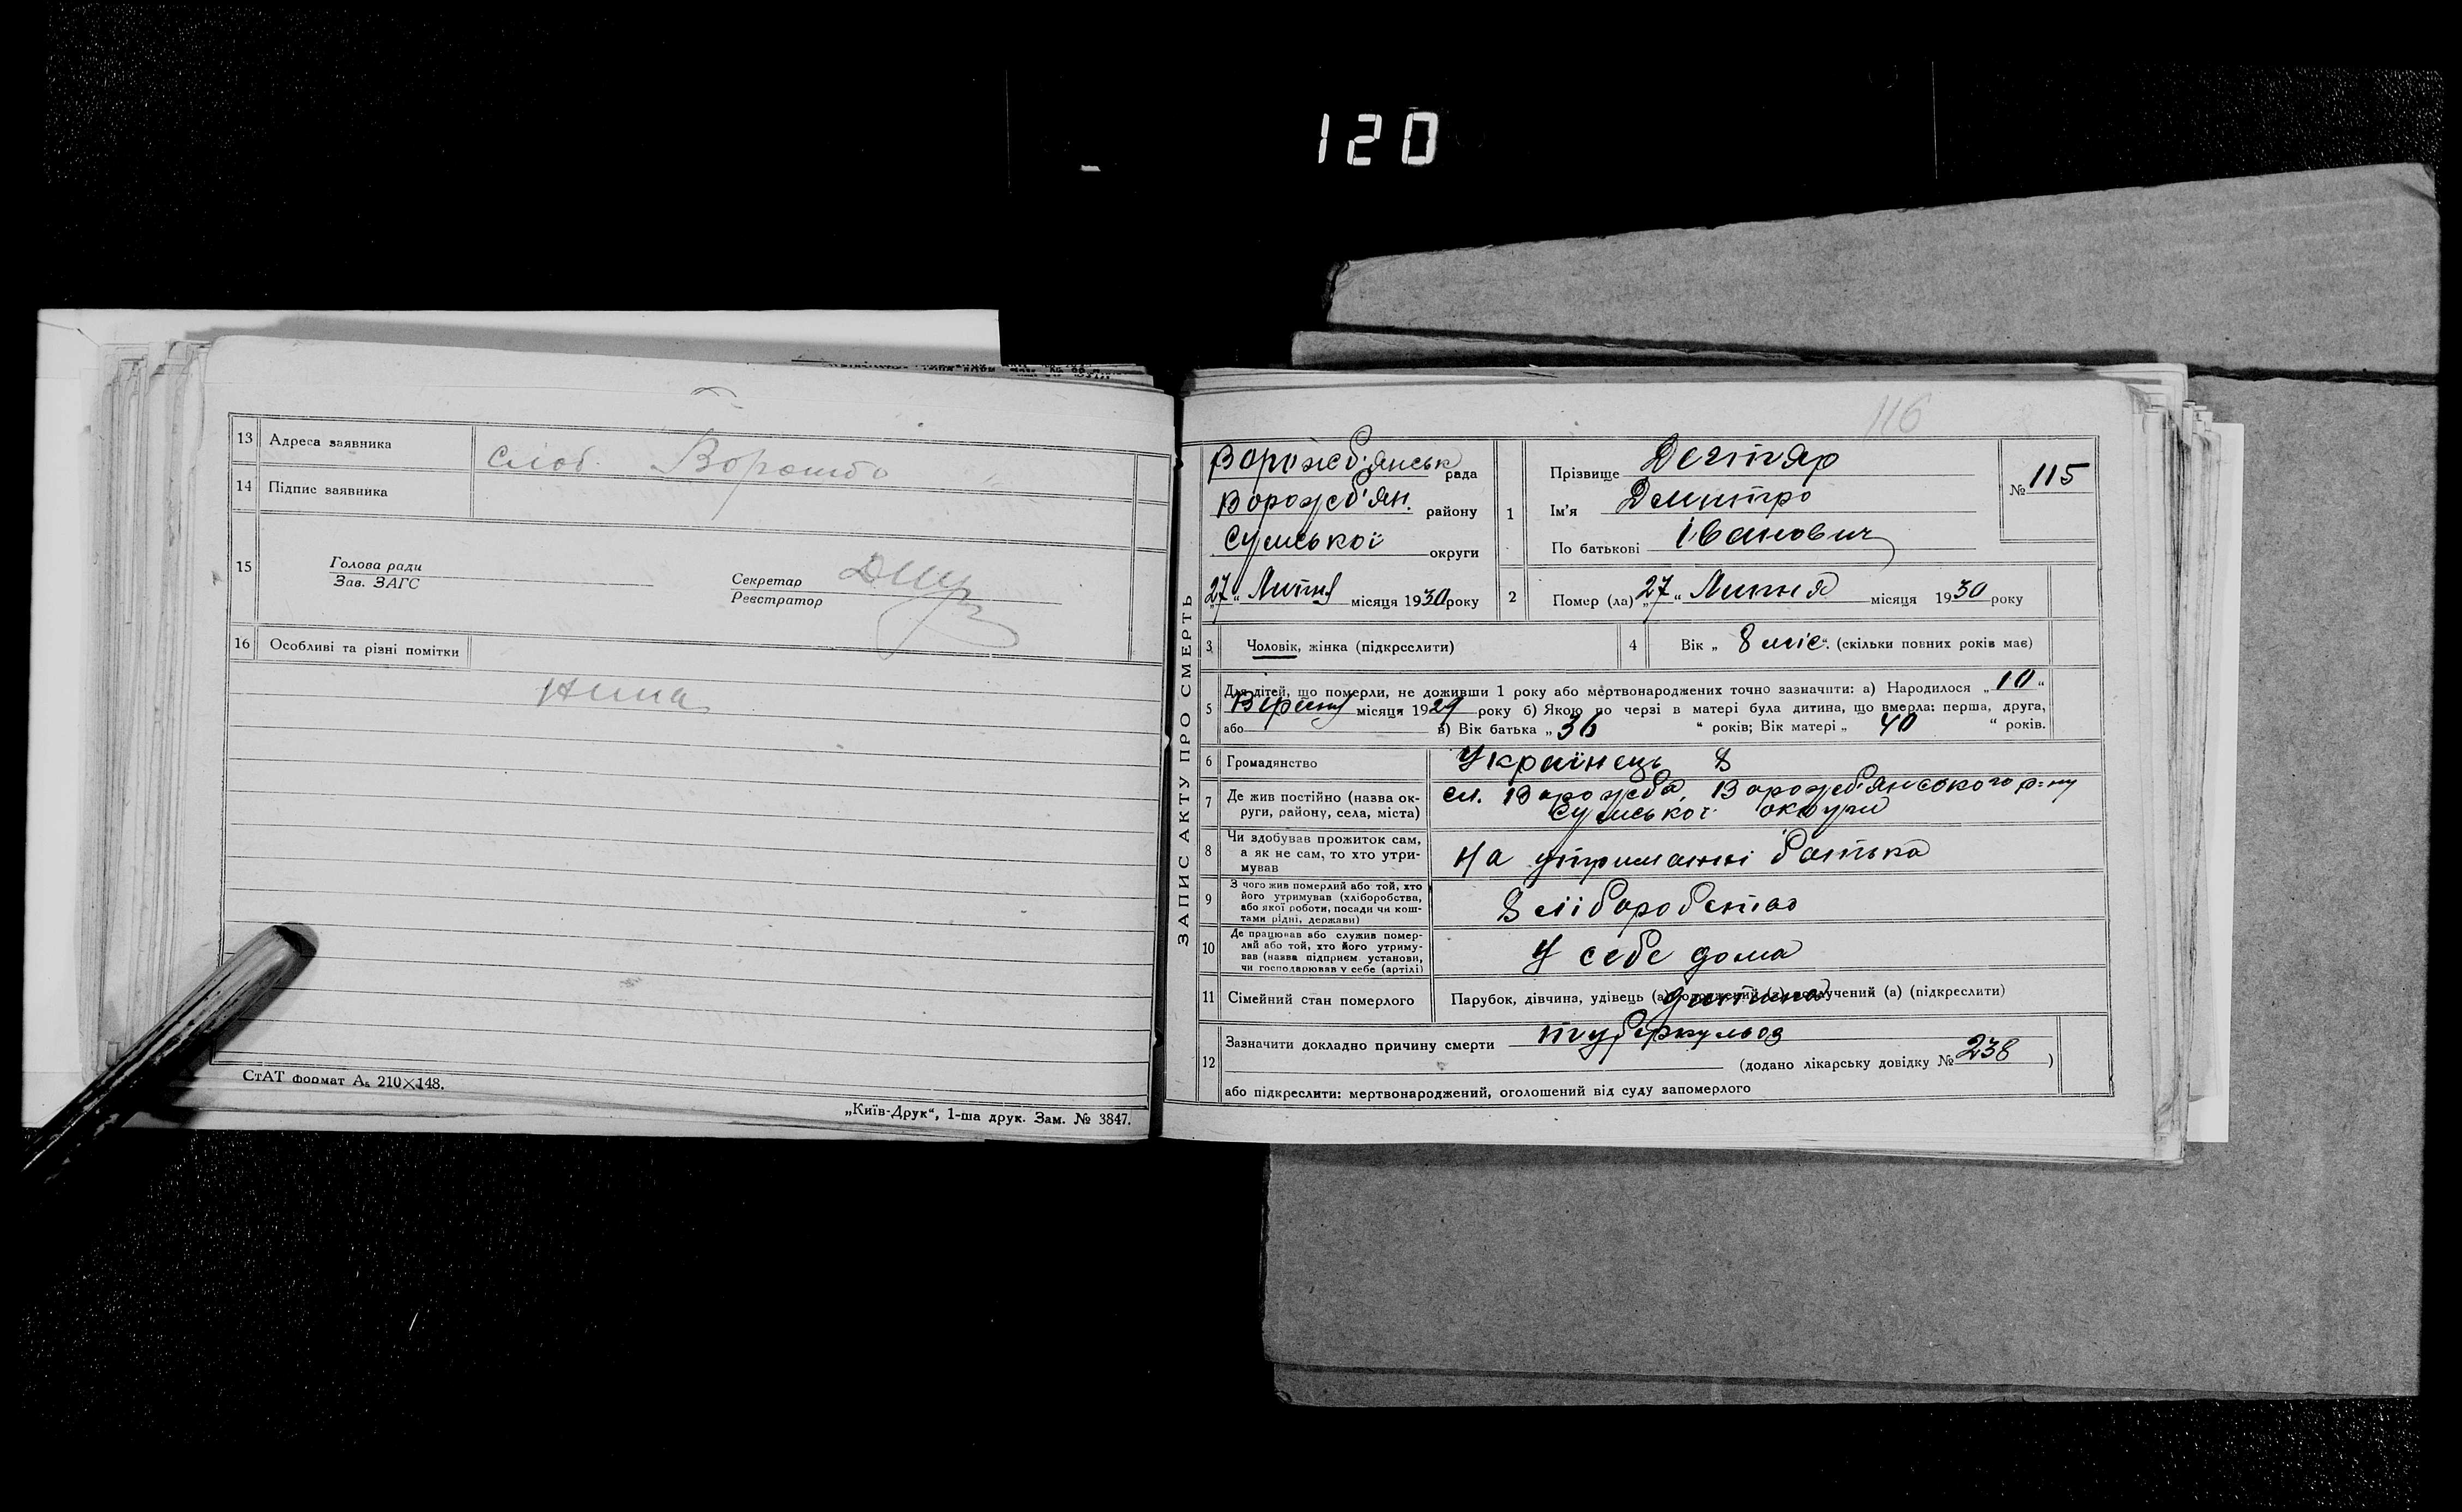 120
13 Адреса заявника
слоб. Ворожба
14 Підпис заявника
15 Голова ради
Зав. ЗАГС
Секретар
Реєстратор
16 Особливі та різні помітки
СтАТ формат А₅ 210×148.
„Київ-Друк“, 1-ша друк. Зам. № 3847.
116
ЗАПИС АКТУ ПРО СМЕРТЬ
Ворожеб'янськ рада
Ворожеб'ян. району
Сумської округи
„27“ Липня місяця 1930 року
1 Прізвище Дегтяр
Ім'я Дмитро
По батькові Іванович
№ 115
2 Помер (ла) „27“ Липня місяця 1930 року
3 Чоловік, жінка (підкреслити)
4 Вік „8 міс“. (скільки повних років має)
5 Для дітей, що померли, не доживши 1 року або мертвонароджених точно зазначити: а) Народилося „10“
Вересня місяця 1929 року б) Якою по черзі в матері була дитина, що вмерла: перша, друга,
або в) Вік батька „36“ років; Вік матері „40“ років.
6 Громадянство Українець
7 Де жив постійно (назва округи, району, села, міста)
сл. Ворожба, Ворожеб'янського р-ну
Сумської округи
8 Чи здобував прожиток сам,
а як не сам, то хто утри-
мував
На утриманні батька
9 З чого жив померлий або той, хто
його утримував (хліборобства,
або якої роботи, посади чи кош-
тами рідні, держави)
З хліборобства
10 Де працював або служив помер-
лий або той, хто його утриму-
вав (назва підприєм. установи,
чи господарював у себе (артілі)
У себе дома
11 Сімейний стан померлого
Парубок, дівчина, удівець (а) одружений (а) розлучений (а) (підкреслити)
дитина
12 Зазначити докладно причину смерти туберкульоз
(додано лікарську довідку № 238)
або підкреслити: мертвонароджений, оголошений від суду запомерлого